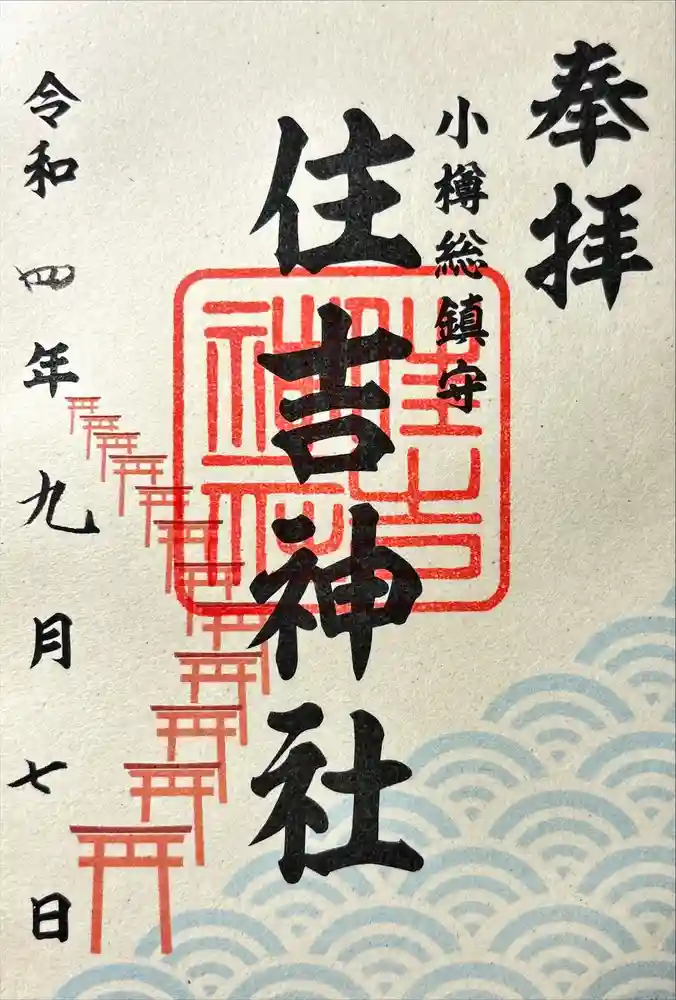 奉拝
小樽総鎮守
住吉神社
住吉
神社
令和四年九月七日